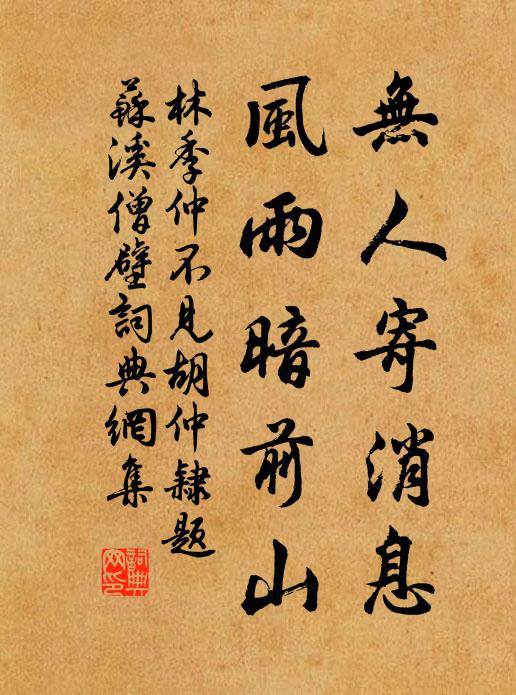 無人寄消息
風雨暗前山
林季仲不見胡仲隸題
蘇溪僧壁詞典網集
詞典
网印